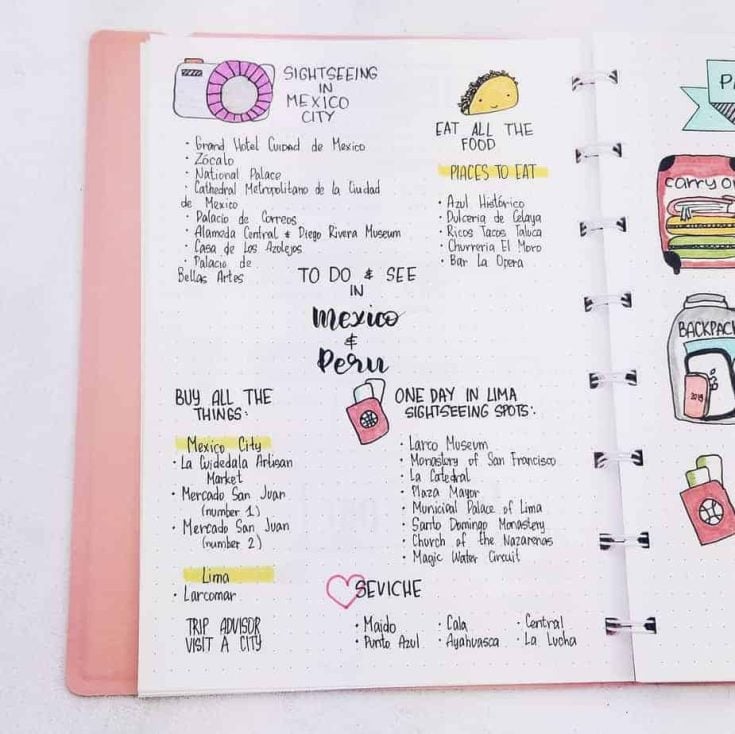 SIGHTSEEING
IN
MEXICO
CITY
· Grand Hotel Cuidad de Mexico
· Zócalo
· National Palace
· Cathedral Metropolitano de la Ciudad
de Mexico
· Palacio de Correos
· Alameda Central & Diego Rivera Museum
· Casa de Los Azolejos
· Palacio de
Bellas Artes
EAT ALL THE
FOOD
PLACES TO EAT
· Azul Histórico
· Dulceria de Celaya
· Ricos Tacos Toluca
· Churreria El Moro
· Bar La Opera
TO DO & SEE
IN
Mexico
&
Peru
BUY ALL THE
THINGS:
Mexico City
· La Cuidedala Artisan
Market
· Mercado San Juan
(number 1)
· Mercado San Juan
(number 2)
Lima
· Larcomar
TRIP ADVISOR
VISIT A CITY
ONE DAY IN LIMA
SIGHTSEEING SPOTS:
· Larco Museum
· Monastery of San Francisco
· La Catedral
· Plaza Mayor
· Municipal Palace of Lima
· Santo Domingo Monastery
· Church of the Nazarenas
· Magic Water Circuit
SEVICHE
· Maido · Cala · Central
· Punto Azul · Ayahuasca · La Lucha
carry
BACKPACK
2018